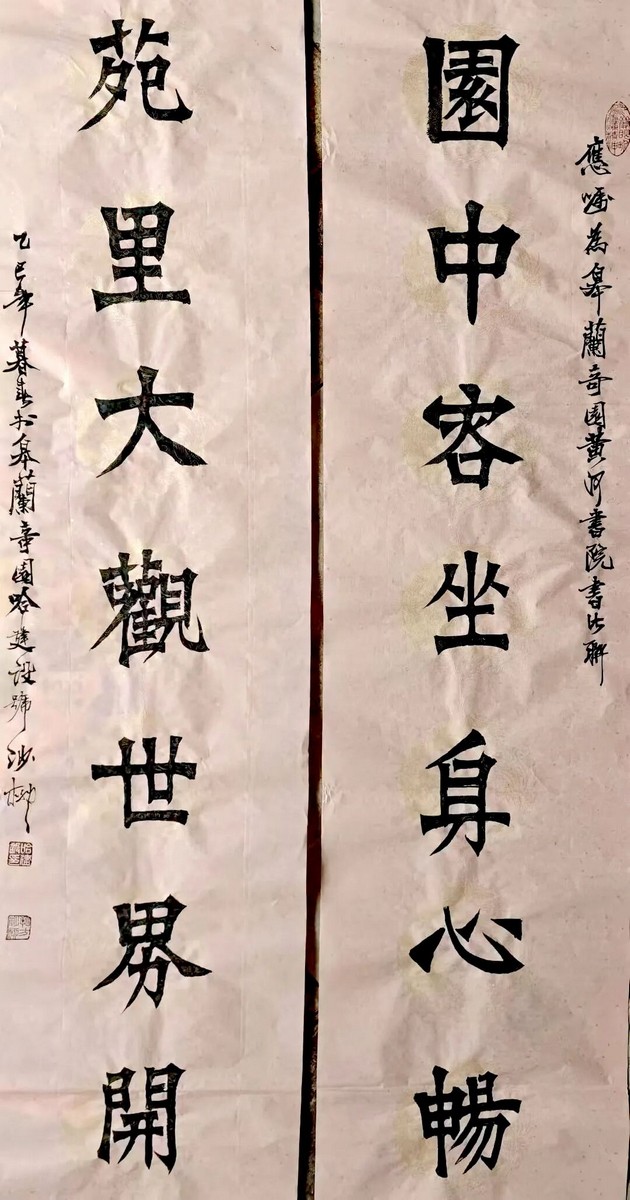 應囑為皋蘭奇園黃河書院書此聯
園中客坐身心暢
苑里大觀世界開
乙巳年暮春於皋蘭奇園哈建設號沙柳